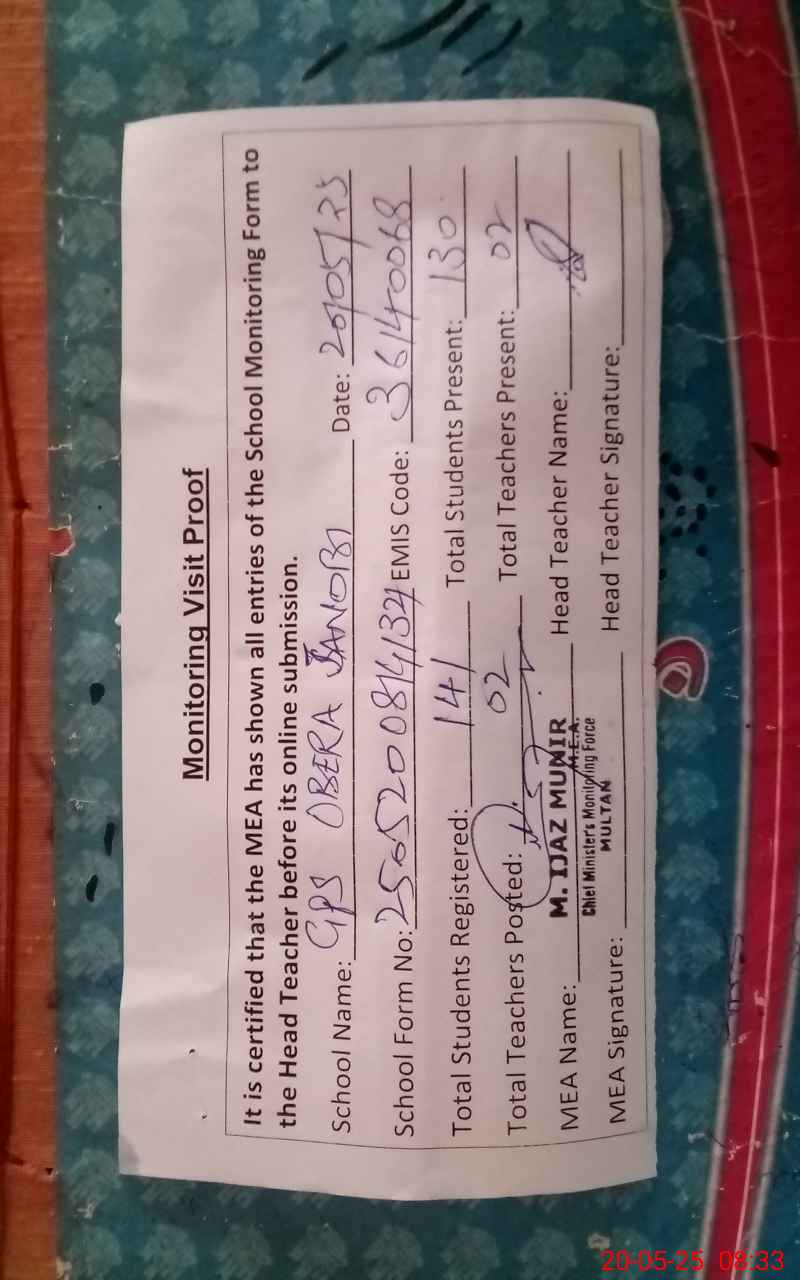 Monitoring Visit Proof
It is certified that the MEA has shown all entries of the School Monitoring Form to
the Head Teacher before its online submission.
School Name: GPS OBERA JANOBI Date: 20/05/25
School Form No: EMIS Code: 36140068
Total Students Registered: 141 Total Students Present: 130
Total Teachers Posted: 02 Total Teachers Present: 02
MEA Name: M. IJAZ MUNIR Head Teacher Name:
M.E.A.
Chief Minister's Monitoring Force
MULTAN
MEA Signature: Head Teacher Signature:
20-05-25 08:33